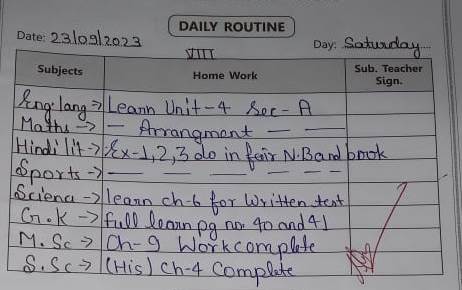 DAILY ROUTINE
Date: 23/09/2023
VIII
Day: Saturday
Subjects Home Work Sub. Teacher Sign.
Eng. lang → Learn Unit-4 Sec-A
Maths → — Arrangment — —
Hindi lit → Ex-1,2,3 do in fair N.B and book
Sports → — — — — — —
Science → learn ch-6 for Written test
G.K → full learn pg no. 40 and 41
M.Sc → Ch-9 Work complete
S.Sc → (His) Ch-4 Complete